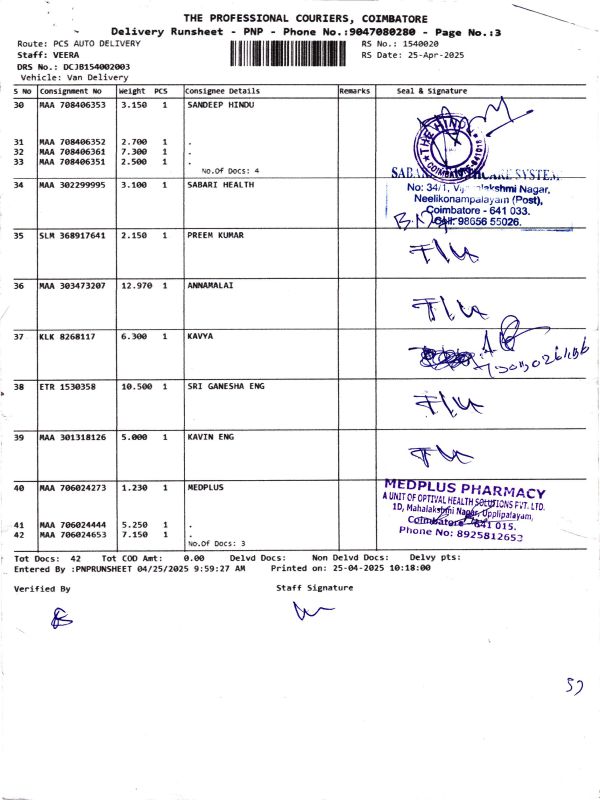 THE PROFESSIONAL COURIERS, COIMBATORE
Delivery Runsheet - PNP - Phone No.:9047080280 - Page No.:3
Route: PCS AUTO DELIVERY
RS No.: 1540020
Staff: VEERA
RS Date: 25-Apr-2025
DRS No.: DCJB154002003
Vehicle: Van Delivery
S No Consignment No Weight PCS Consignee Details Remarks Seal & Signature
30 MAA 708406353 3.150 1 SANDEEP HINDU
31 MAA 708406352 2.700 1 .
32 MAA 708406361 7.300 1 .
33 MAA 708406351 2.500 1 .
No.Of Docs: 4
THE HINDU
COIMBATORE-641018
34 MAA 302299995 3.100 1 SABARI HEALTH
No: 34/1, Nagar,
Neelikonampalayam (Post),
Coimbatore - 641 033.
Cell: 98656 55026.
35 SLM 368917641 2.150 1 PREEM KUMAR
36 MAA 303473207 12.970 1 ANNAMALAI
37 KLK 8268117 6.300 1 KAVYA
38 ETR 1530358 10.500 1 SRI GANESHA ENG
39 MAA 301318126 5.000 1 KAVIN ENG
40 MAA 706024273 1.230 1 MEDPLUS
41 MAA 706024444 5.250 1 .
42 MAA 706024653 7.150 1 .
No.Of Docs: 3
MEDPLUS PHARMACY
A UNIT OF OPTIVAL HEALTH SOLUTIONS PVT. LTD.
1D, Mahalakshmi Nagar, Upplipalayam,
Coimbatore - 641 015.
Phone No: 8925812653
Tot Docs: 42 Tot COD Amt: 0.00 Delvd Docs: Non Delvd Docs: Delvy pts:
Entered By :PNPRUNSHEET 04/25/2025 9:59:27 AM Printed on: 25-04-2025 10:18:00
Verified By
Staff Signature